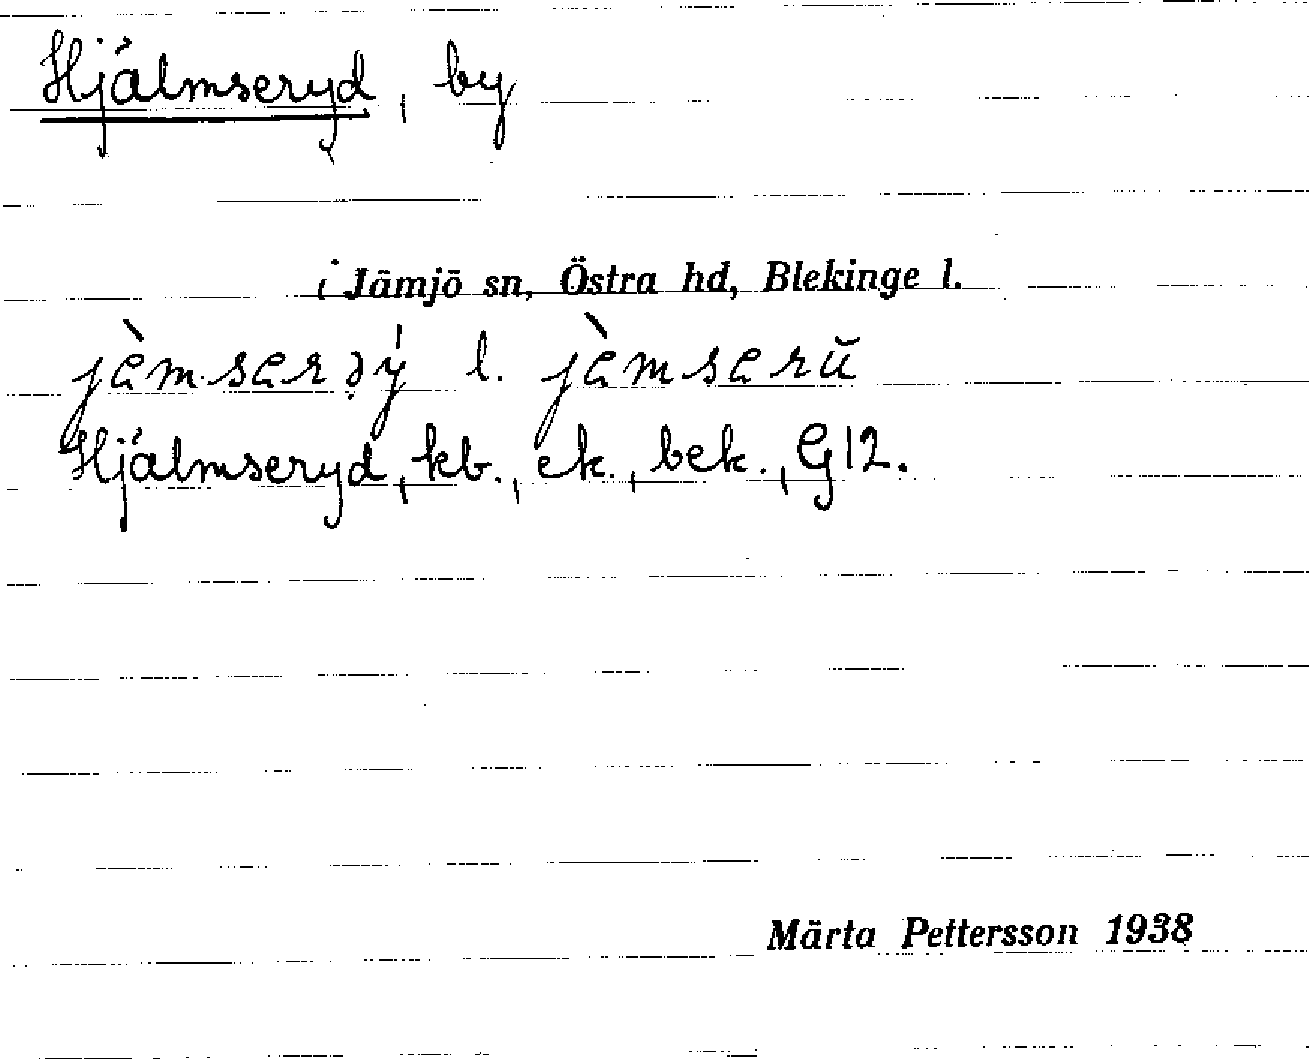 Hjälmseryd, by
i Jämjö sn, Östra hd, Blekinge l.
jèmserəý l. jèmserŭ
Hjälmseryd, kb., ek., bek., G12.
Märta Pettersson 1938